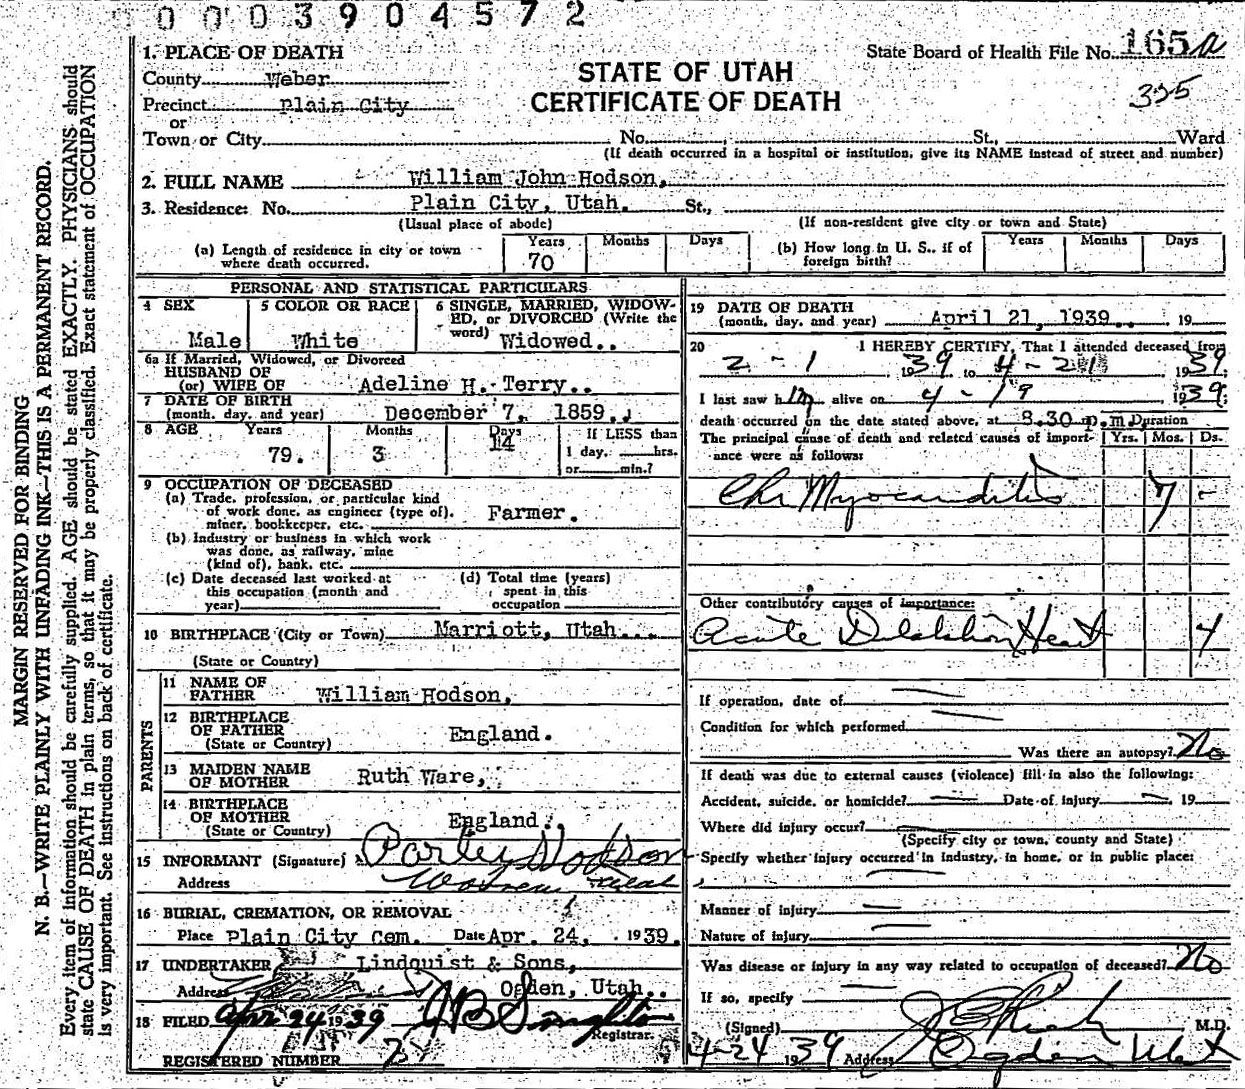 0003904572
MARGIN RESERVED FOR BINDING
N. B.—WRITE PLAINLY WITH UNFADING INK—THIS IS A PERMANENT RECORD.
Every item of information should be carefully supplied. AGE should be stated EXACTLY. PHYSICIANS should
state CAUSE OF DEATH in plain terms, so that it may be properly classified. Exact statement of OCCUPATION
is very important. See instructions on back of certificate.
1. PLACE OF DEATH
County Weber
Precinct Plain City
or
Town or City
State Board of Health File No. 165 a
335
STATE OF UTAH
CERTIFICATE OF DEATH
No. St., Ward
(If death occurred in a hospital or institution, give its NAME instead of street and number)
2. FULL NAME William John Hodson,
3. Residence: No. Plain City, Utah. St.,
(Usual place of abode) (If non-resident give city or town and State)
(a) Length of residence in city or town where death occurred. Years 70 Months Days
(b) How long in U. S., if of foreign birth? Years Months Days
PERSONAL AND STATISTICAL PARTICULARS
4 SEX Male
5 COLOR OR RACE White
6 SINGLE, MARRIED, WIDOW-
ED, or DIVORCED (Write the
word) Widowed..
6a If Married, Widowed, or Divorced
HUSBAND OF
(or) WIFE OF Adeline H. Terry..
7 DATE OF BIRTH
(month, day, and year) December 7, 1859..
8 AGE Years 79. Months 3 Days 14
If LESS than
1 day, hrs.
or min.?
9 OCCUPATION OF DECEASED
(a) Trade, profession, or particular kind
of work done, as engineer (type of),
miner, bookkeeper, etc. Farmer.
(b) Industry or business in which work
was done, as railway, mine
(kind of), bank, etc.
(c) Date deceased last worked at
this occupation (month and
year)
(d) Total time (years)
spent in this
occupation
10 BIRTHPLACE (City or Town) Marriott, Utah...
(State or Country)
PARENTS
11 NAME OF
FATHER William Hodson,
12 BIRTHPLACE
OF FATHER England.
(State or Country)
13 MAIDEN NAME
OF MOTHER Ruth Ware,
14 BIRTHPLACE
OF MOTHER England.
(State or Country)
15 INFORMANT (Signature) Parley Hodson
Address Utah
16 BURIAL, CREMATION, OR REMOVAL
Place Plain City Cem. Date Apr. 24, 1939.
17 UNDERTAKER Lindquist & Sons,
Address Ogden, Utah..
18 FILED Apr 24 1939
Registrar.
REGISTERED NUMBER
19 DATE OF DEATH
(month, day, and year) April 21, 1939.. 19
20 I HEREBY CERTIFY, That I attended deceased from
2 - 1 1939 to 4 - 21 1939
I last saw him alive on 4 - 19 1939;
death occurred on the date stated above, at 8.30 p.m. Duration
The principal cause of death and related causes of import-
ance were as follows: Yrs. Mos. Ds.
Chr Myocarditis 7 -
Other contributory causes of importance:
Acute Dilalation Heart 4
If operation, date of
Condition for which performed
Was there an autopsy? No
If death was due to external causes (violence) fill in also the following:
Accident, suicide, or homicide? Date of injury 19
Where did injury occur?
(Specify city or town, county and State)
Specify whether injury occurred in industry, in home, or in public place:
Manner of injury
Nature of injury
Was disease or injury in any way related to occupation of deceased? No
If so, specify
(Signed) M.D.
4-24 1939 Address Ogden Utah